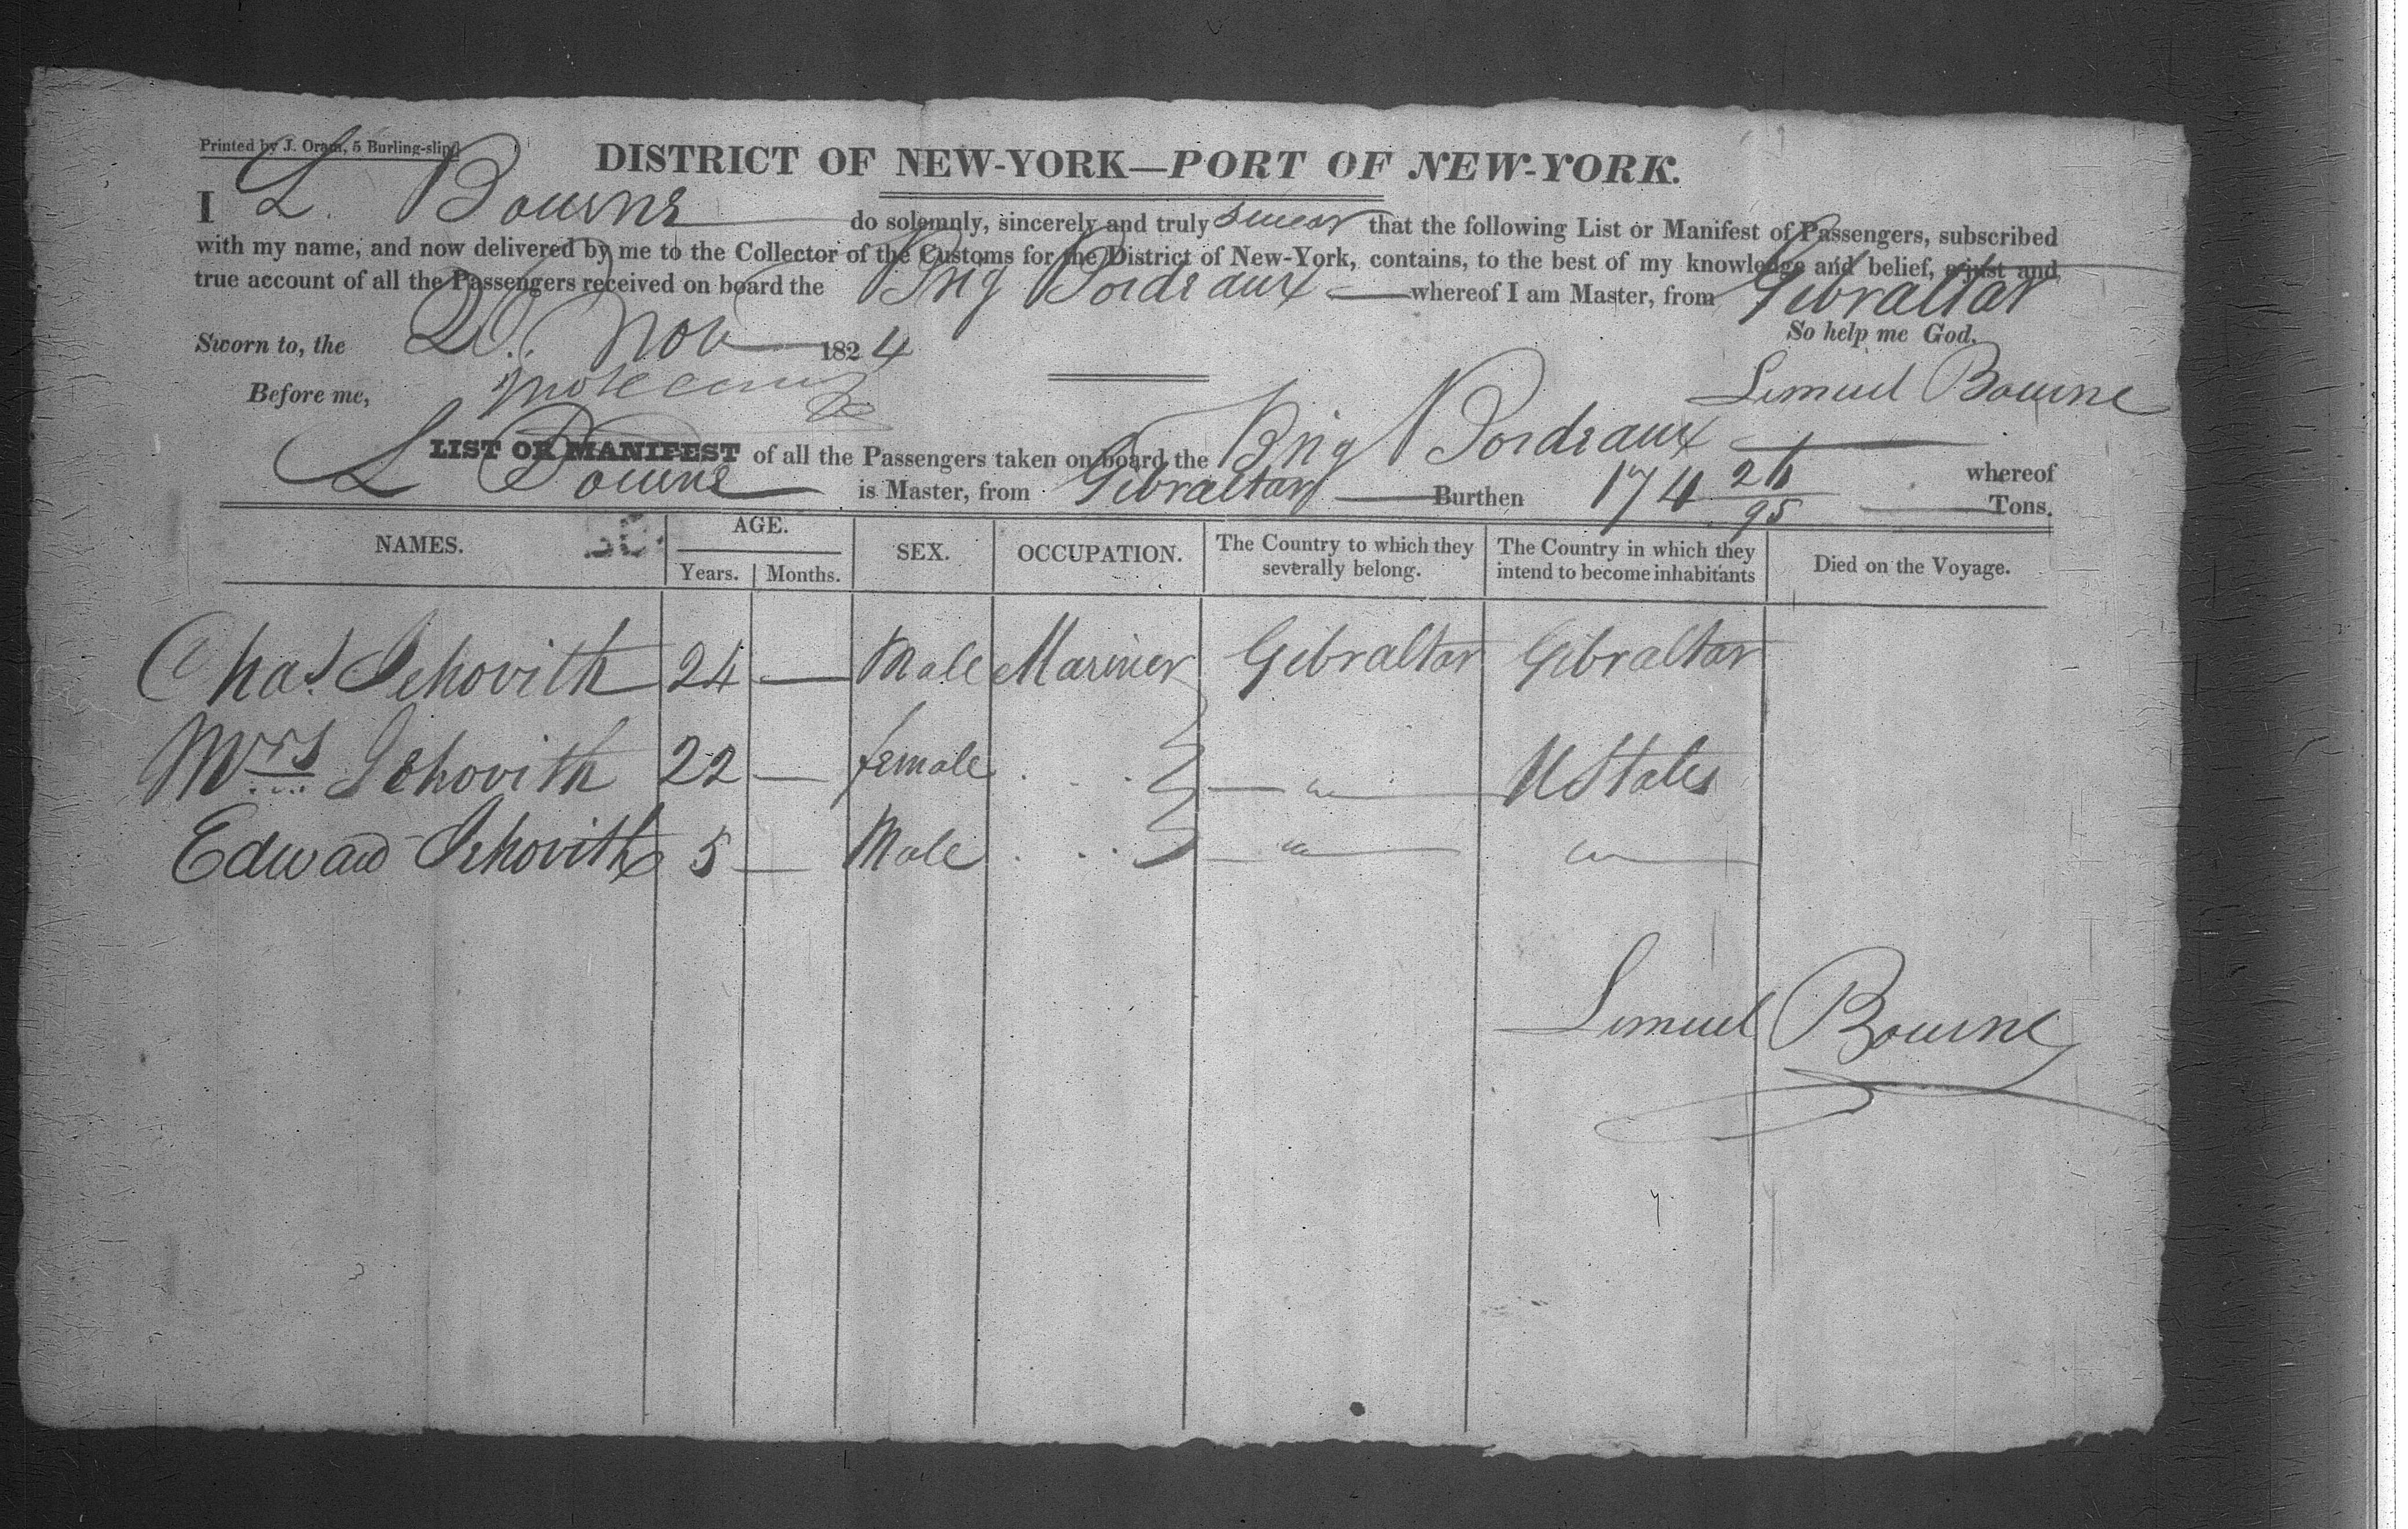 Printed by J. Oram, 5 Burling-slip.
DISTRICT OF NEW-YORK—PORT OF NEW-YORK.
I L. Bourne do solemnly, sincerely and truly swear that the following List or Manifest of Passengers, subscribed
with my name, and now delivered by me to the Collector of the Customs for the District of New-York, contains, to the best of my knowledge and belief, a just and
true account of all the Passengers received on board the Brig Bordeaux whereof I am Master, from Gibraltar
So help me God.
Sworn to, the Nov 1824
Lemuel Bourne
Before me,
LIST OR MANIFEST of all the Passengers taken on board the Brig Bordeaux whereof
L Bourne is Master, from Gibraltar Burthen 174 /95 Tons.
NAMES. AGE. SEX. OCCUPATION. The Country to which they severally belong. The Country in which they intend to become inhabitants Died on the Voyage.
Years. Months.
Chas. Sehovith 24 — Male Mariner Gibraltar Gibraltar
Mrs Sehovith 22 — female " U States
Edward Sehovith 5 — Male " "
Lemuel Bourne